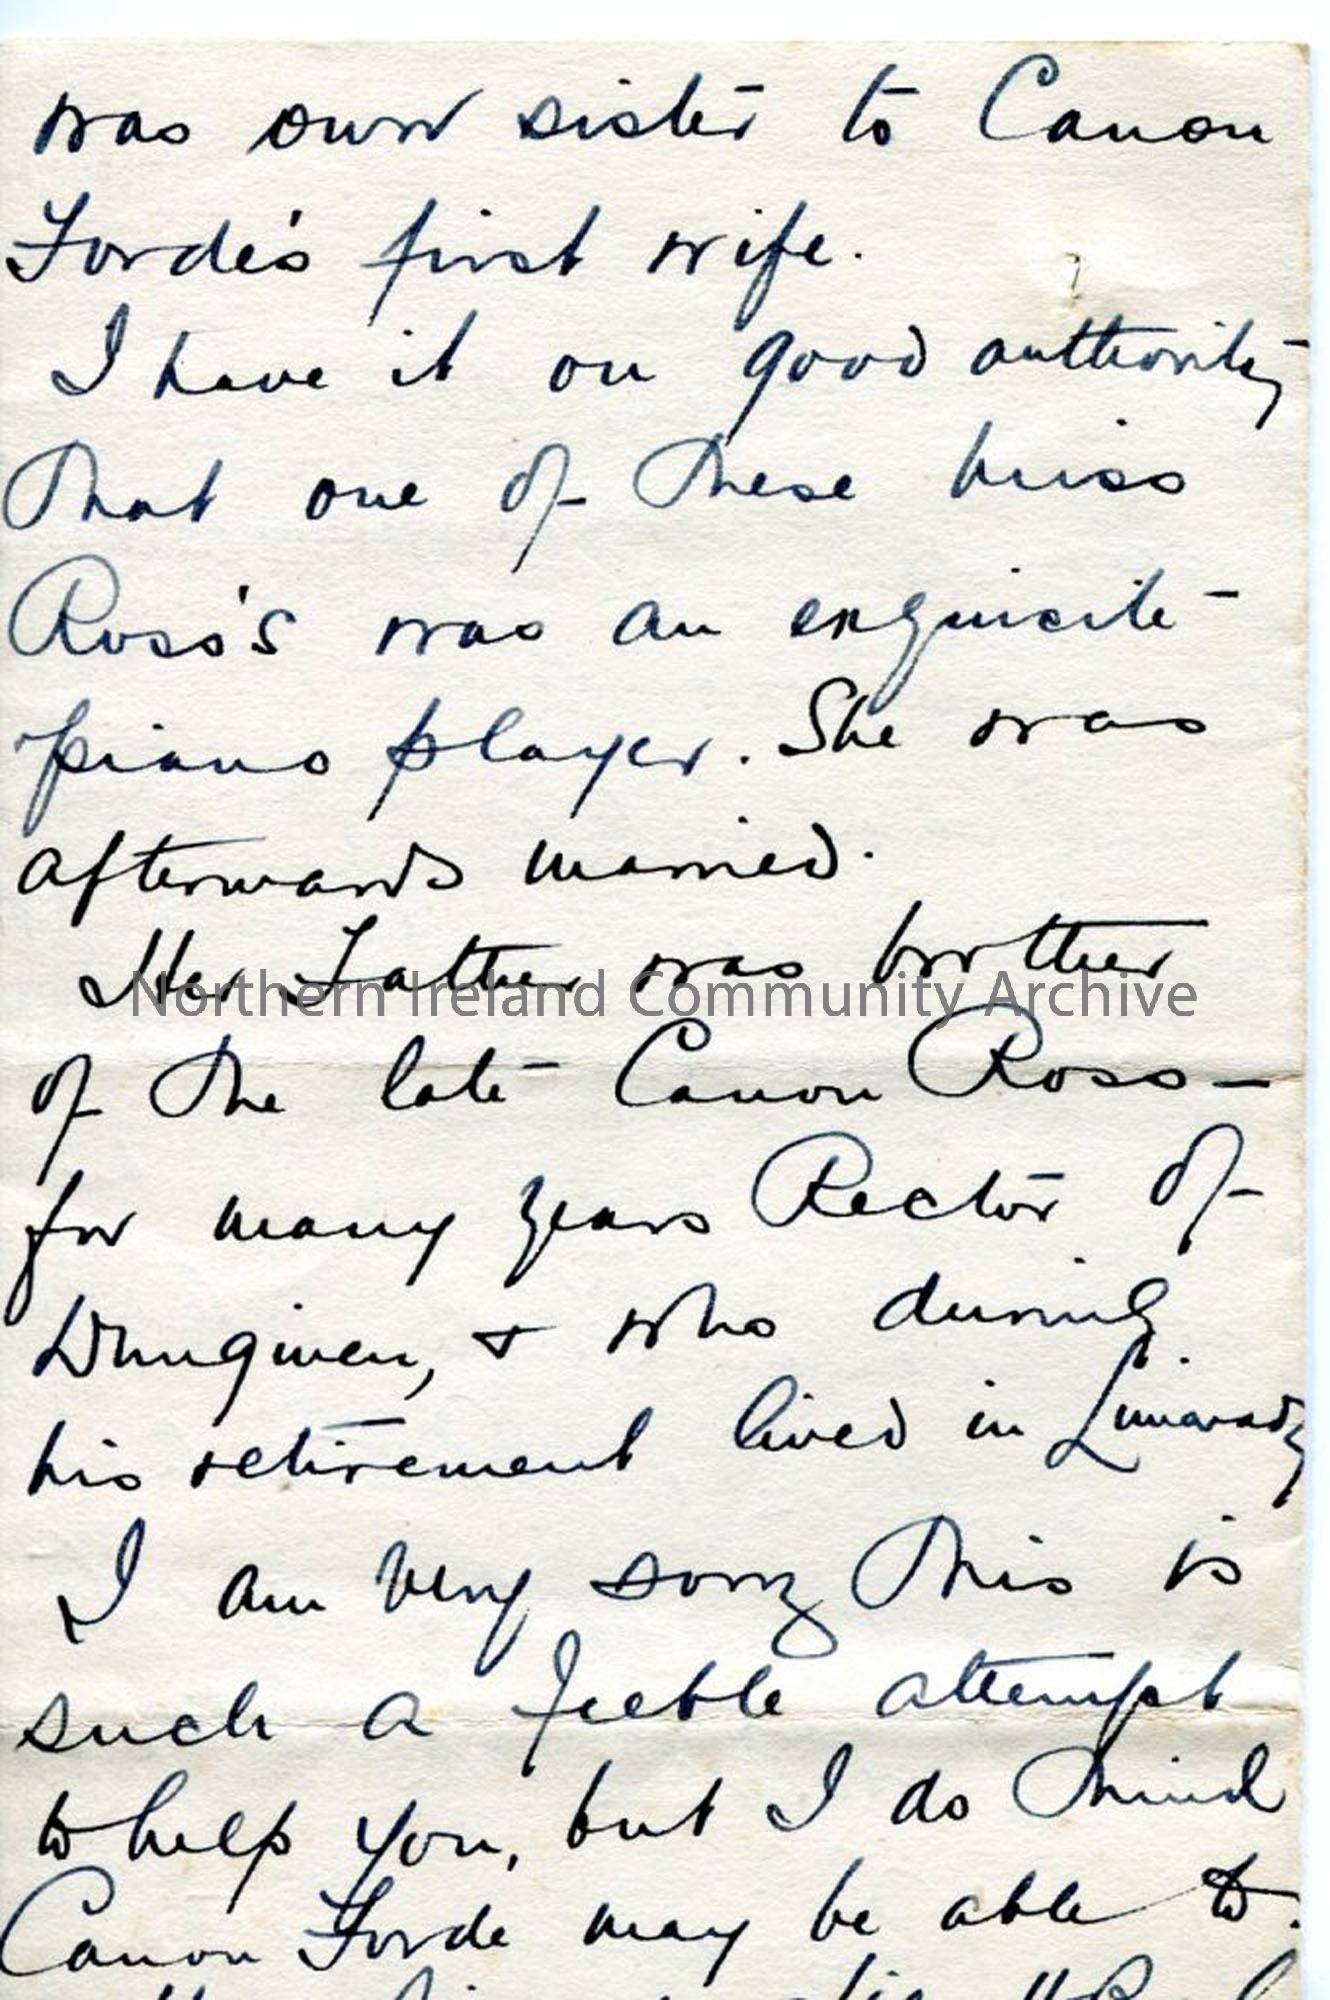 was own sister to Canon
Forde's first wife.
I have it on good authority
that one of these Miss
Ross's was an exquisite
piano player. She was
afterwards married.
Her Father was brother
Northern Ireland Community Archive
of the late Canon Ross –
for many years Rector of
Dungiven, & who during
his retirement lived in Limavady
I am very sorry this is
such a feeble attempt
to help you, but I do think
Canon Forde may be able to